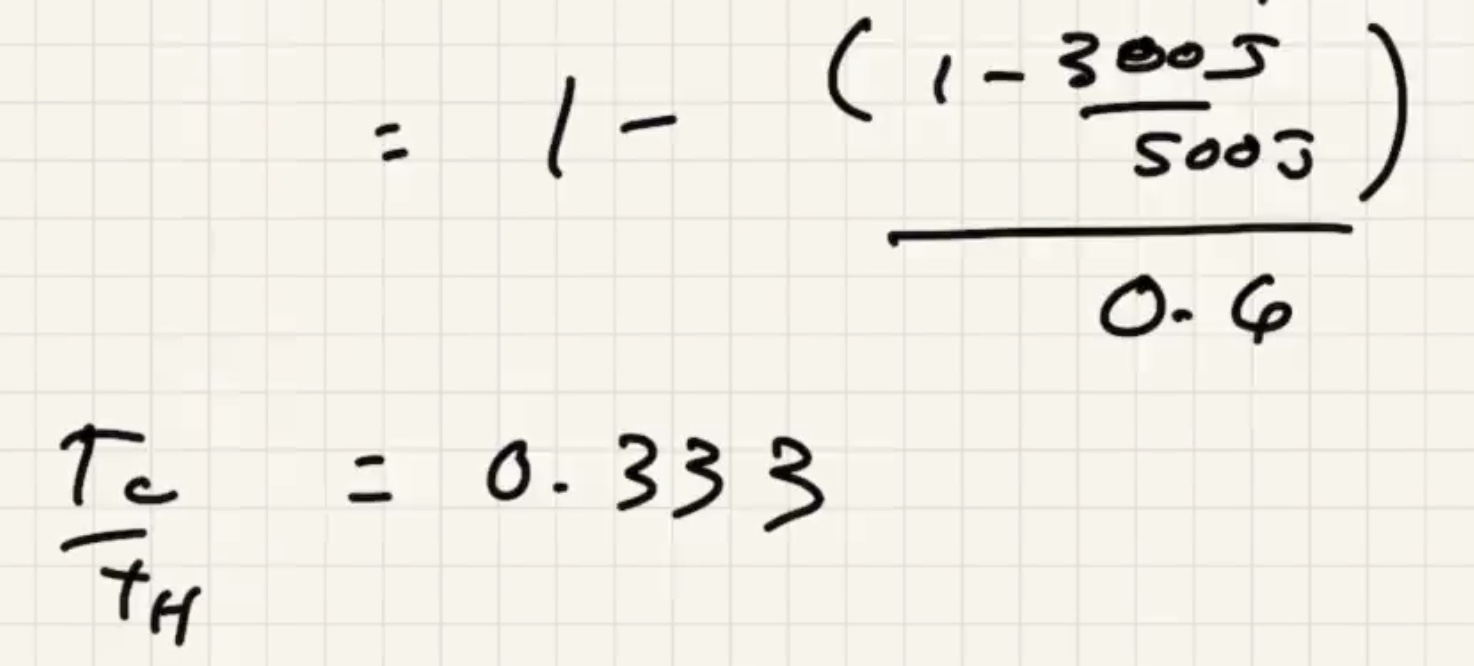 = 1 - (1 - 300J/500J)/0.6
Tc/TH = 0.333